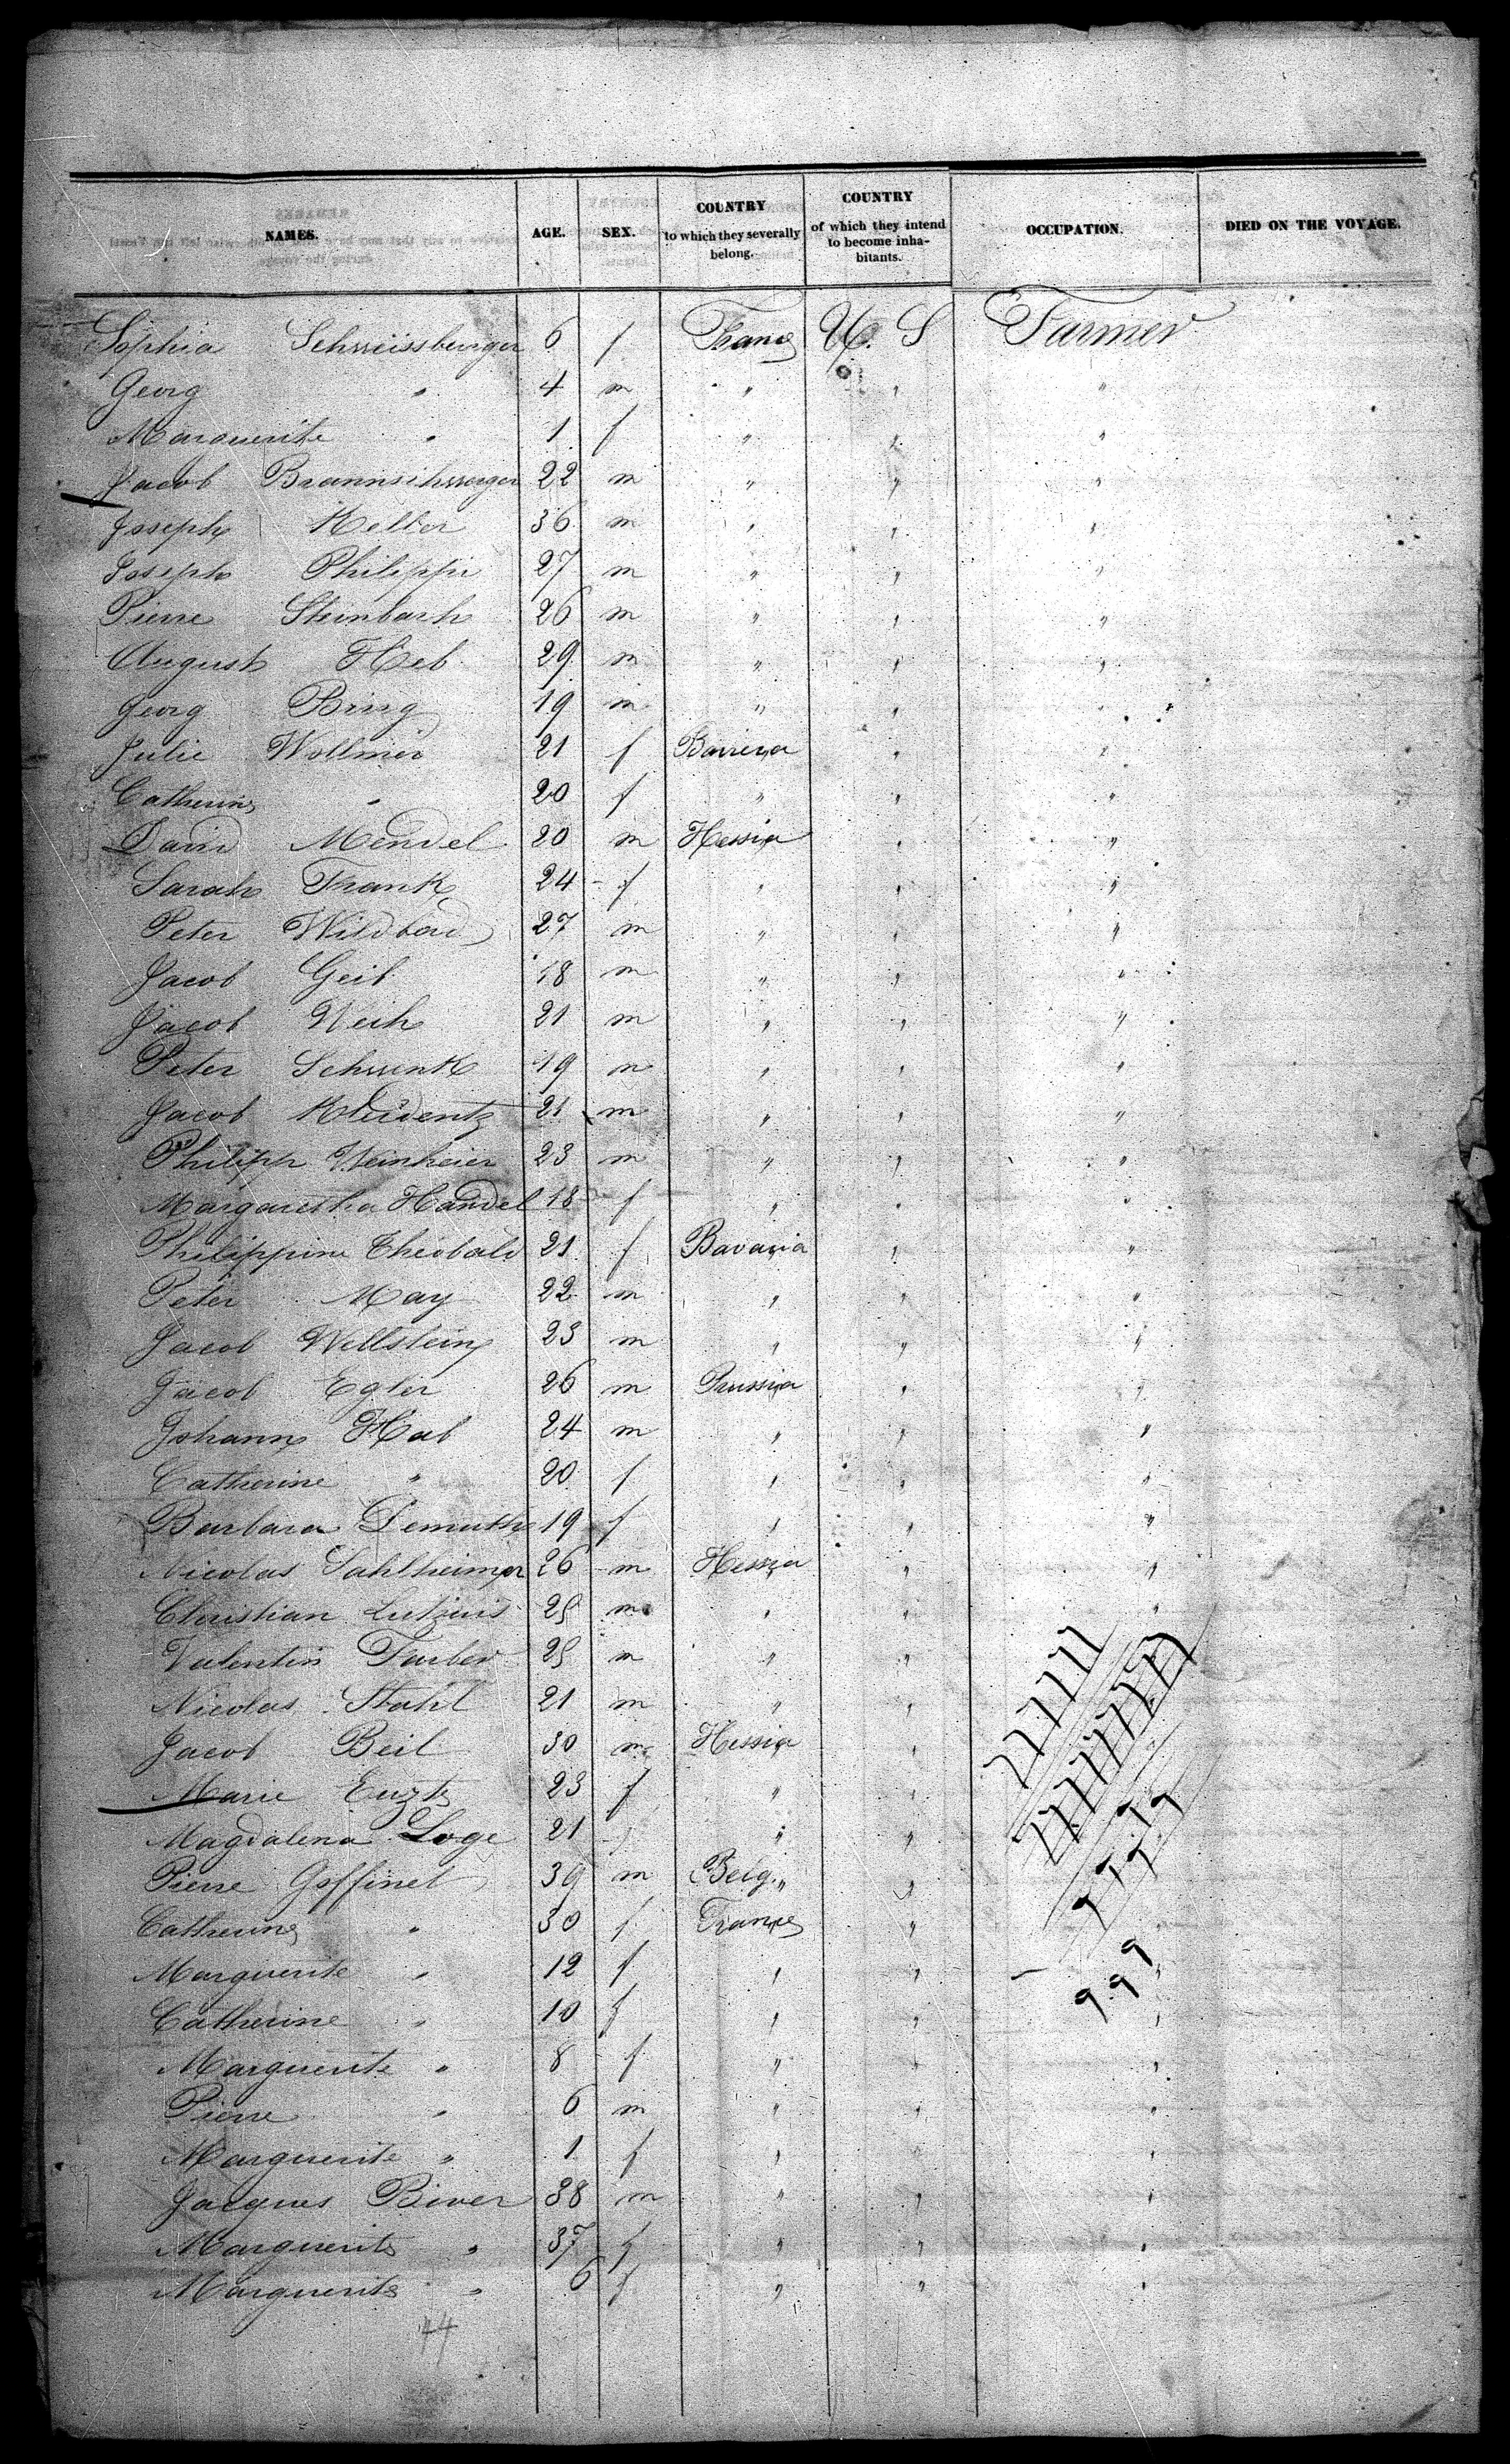 NAMES. AGE. SEX. COUNTRY to which they severally belong. COUNTRY of which they intend to become inha-bitants. OCCUPATION. DIED ON THE VOYAGE.
Sophia 6 f France U. S Farmer
Georg " 4 m " " "
Marguerite " 1 f " " "
Jacob 22 m " " "
Joseph Keller 36 m " " "
Joseph Philippi 27 m " " "
Pierre Steinbach 26 m " " "
August Heb 29 m " " "
Georg 19 m " " "
Julie Wollmer 21 f " "
Catherine " 20 f " " "
David Mendel 20 m Hessia " "
Sarah Frank 24 f " " "
Peter Wildbad 27 m " " "
Jacob Geib 18 m " " "
Jacob 21 m " " "
Peter Schwenk 19 m " " "
Jacob 21 m " " "
Philipp Weinheier 23 m " " "
Margaretha Handel 18 f " " "
Philippine Theobald 21 f Bavaria " "
Peter May 22 m " " "
Jacob Wellstein 23 m " " "
Jacob Egler 26 m Prussia " "
Johann Hab 24 m " " "
Catherine " 20 f " " "
Barbara Demuth 19 f " " "
Nicolas Sahlheimer 26 m Hessia " "
Christian m " " "
Valentin Farber m " "
Nicolas Stahl 21 m " "
Jacob Beil 30 m Hessia
Marie 23 f "
Magdalena Loge 21 f " "
Pierre Goffinet 39 m Belg. " "
Catherine " 30 f France "
Marguerite " 12 f " " "
Catherine " 10 f " " "
Marguerite " 8 f " " "
Pierre " 6 m " " "
Marguerite " 1 f " " "
Jacques Biver 38 m " " "
Marguerite " 37 f " " "
Marguerite " 6 f " " "
44